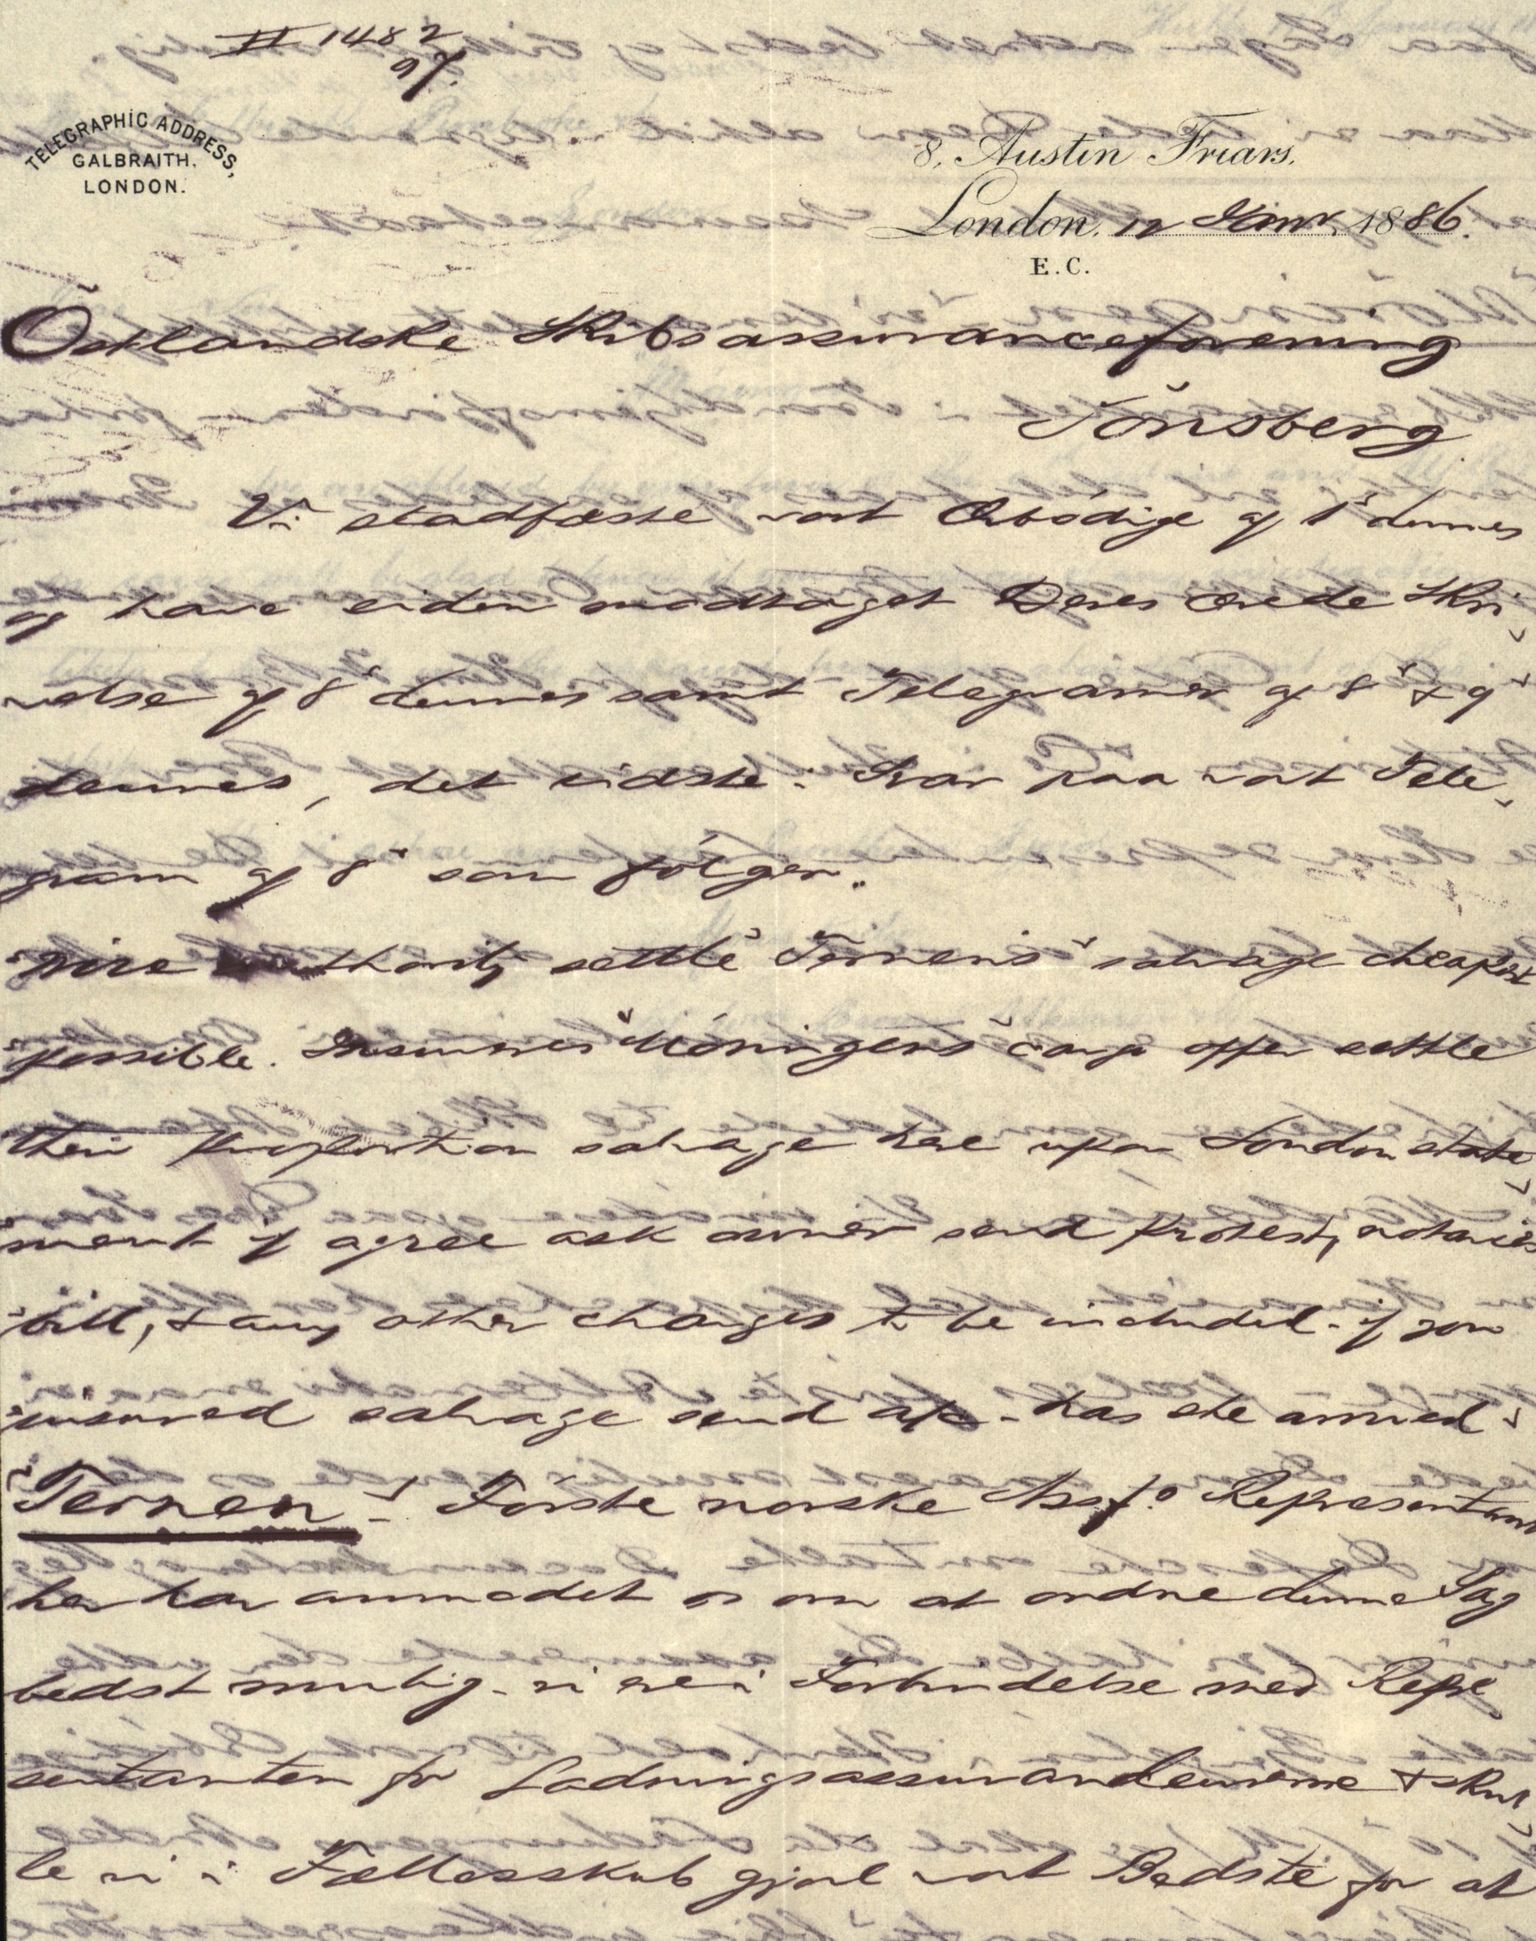 II 1482
97.
TELEGRAPHIC ADDRESS,
GALBRAITH.
LONDON.
8, Austin Friars,
London, 12 1886.
E.C.
Östlandske Skibsassuranceforening
Tönsberg
Vi stadfæste vort Ærbödige af 1' dennes
og have siden modtaget Deres ærede Skri
velse af 8' dennes samt Telegramer af 8' & 9'
dennes, det sidste i Svar paa vort Tele
gram af 8' som fölger"
"give authority settle "Ternens" salvage cheapest
"possible. Insurers "Höningens" cargo offer settle
their proportion salvage here upon London state
ment if agree ask owner send protest, notaries
"bill, & any other charges to be included - if you
"insured salvage send a/c - has she arrived"
"Ternen" - Förste norske Assf.o Representant
her har anmodet os om at ordne denne Sag
bedst mulig - vi ere i Forbindelse med Repre
sentanten for Ladningsassurandeurerne & skul
le vi i Fællesskab gjöre vort Bedste for at